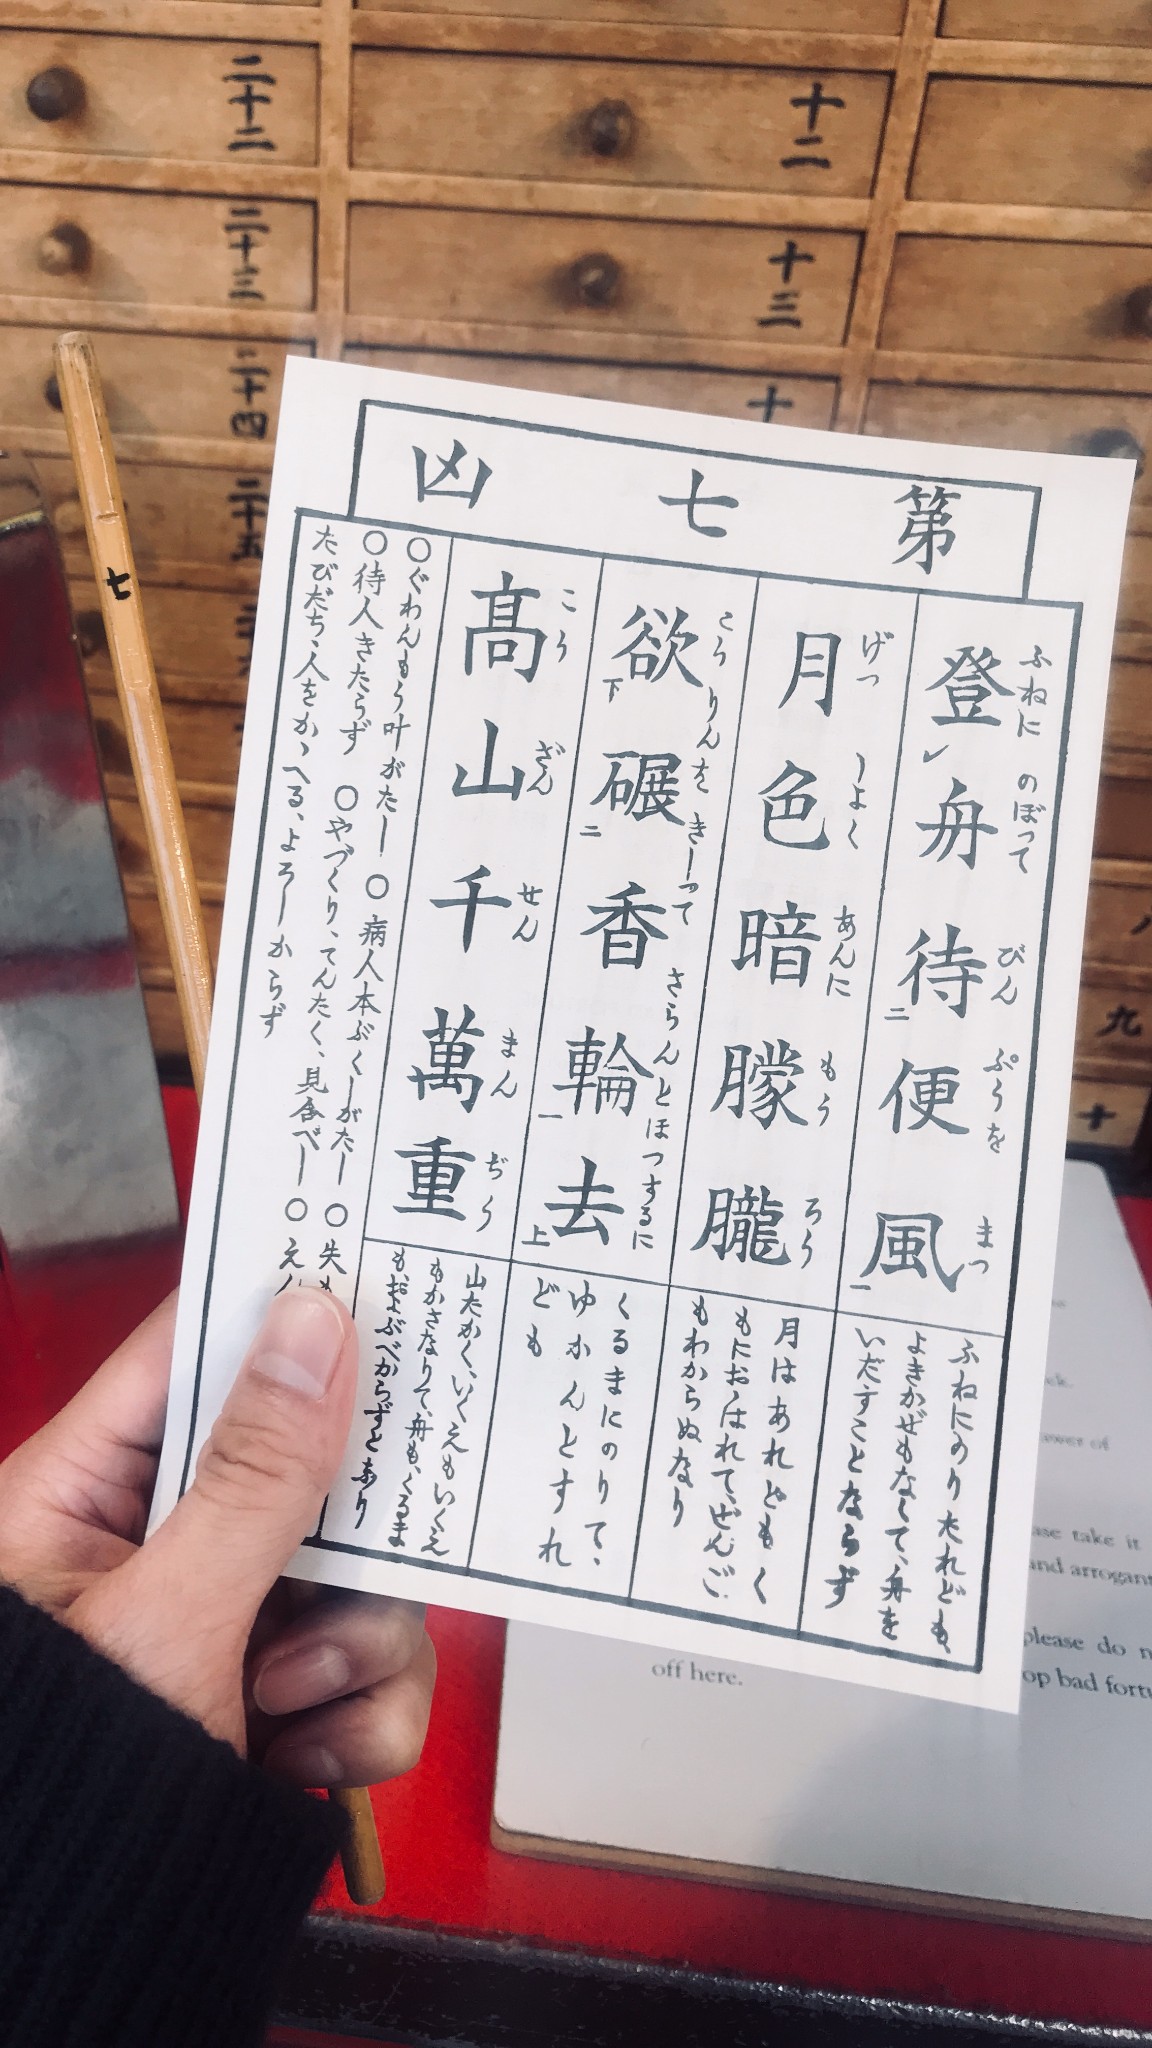 二十二
十二
二十三
十三
二十四
十
二十五
九
十
七
第七凶
登舟待便風
ふねに のぼつて びん ぷうを まつ
ふねにのりたれども、
よきかぜもなくて、舟を
いだすことならず
月色暗朦朧
げつ しよく あんに もう ろう
月はあれどもく
もにおゝはれて、ぜんご
もわからぬなり
欲碾香輪去
こう りんを きしつて さらんとほつするに
くるまにのりて、
ゆかんとすれ
ども
高山千萬重
こう ざん せん まん ぢう
山たかく、いくえもいくえ
もかさなりて、舟も、くるま
も、およぶべからずとあり
○ぐわんもう叶がたし ○病人本ぶくしがたし ○失も
○待人きたらず ○やづくり、てんたく、見合べし ○えん
たびだち、人をかゝへる、よろしからず
ase take it
and arrogant
please do n
off here.
op bad fortu